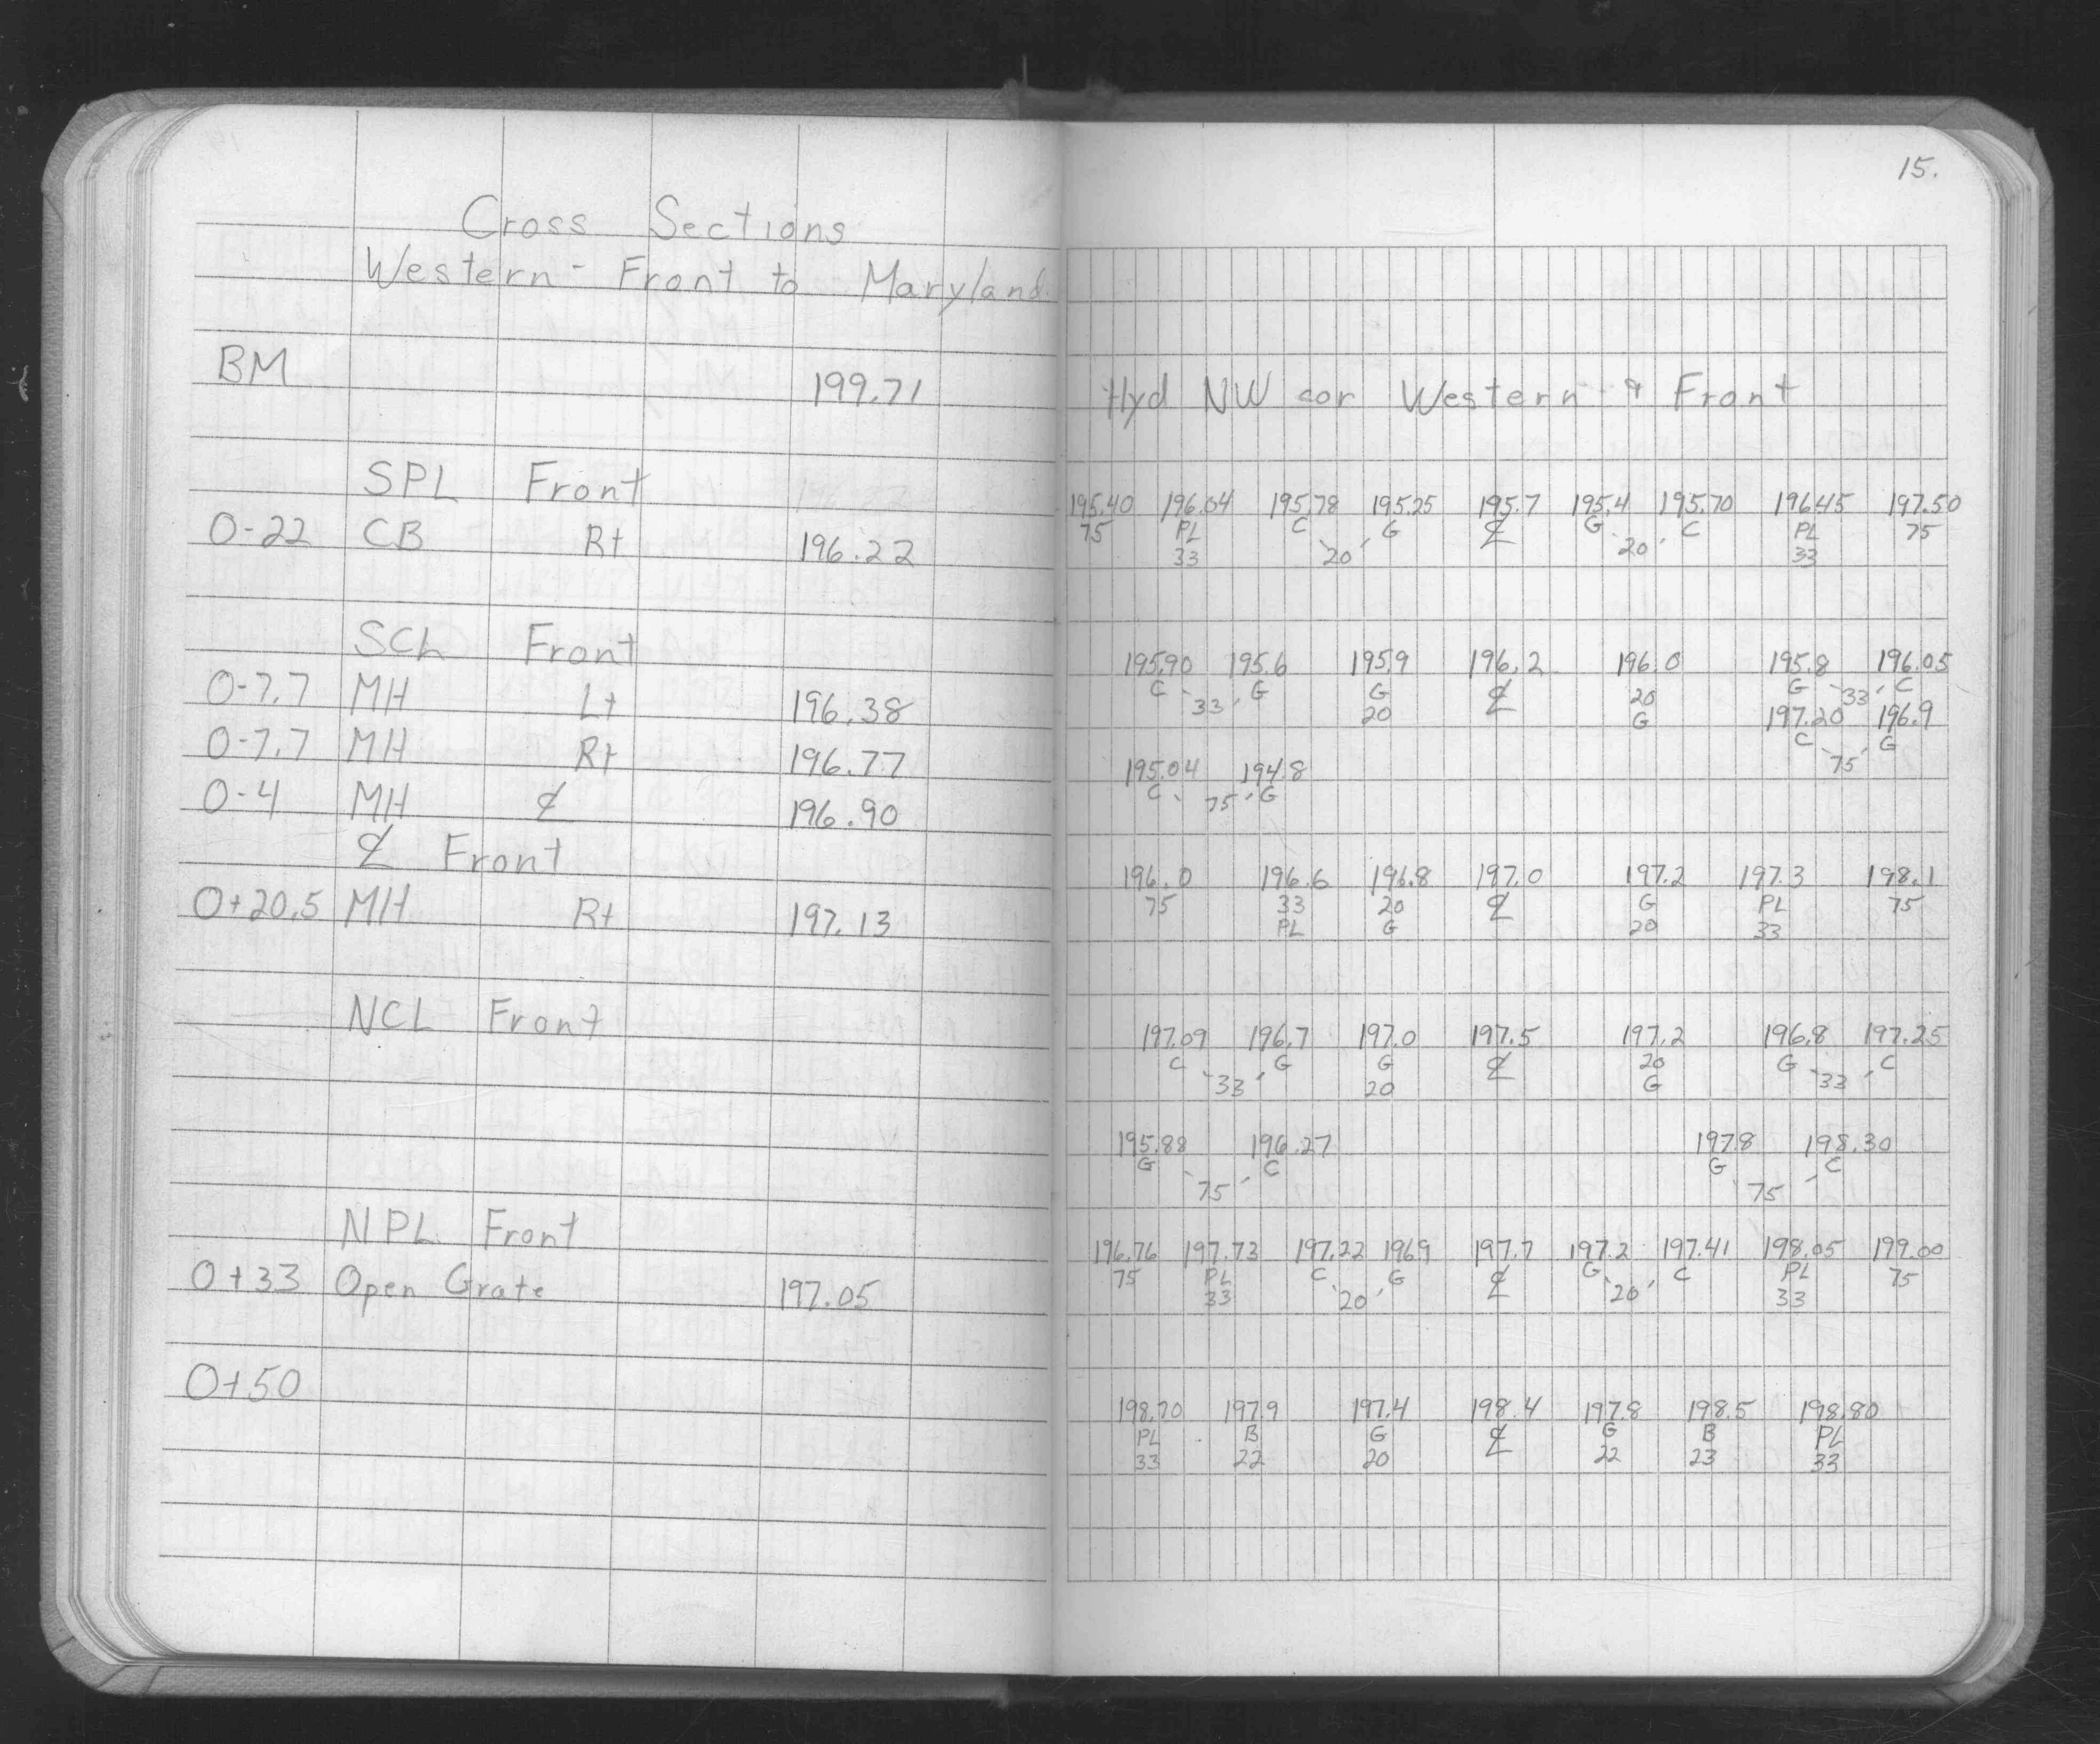 15.
Cross Sections
Western - Front to Maryland
BM 199.71 Hyd NW cor Western & Front
SPL Front 195.40 196.04 195.78 195.25 195.7 195.4 195.70 196.45 197.50
75 PL C G ℄ G C PL 75
0-22 CB Rt 196.22 33 20 20 33
SCL Front 195.90 195.6 195.9 196.2 196.0 195.8 196.05
C G G ℄ 20 G C
33 20 G 33
0-7.7 MH Lt 196.38 197.20 196.9
C G
75
0-7.7 MH Rt 196.77 195.04 194.8
C G
75
0-4 MH ℄ 196.90
℄ Front 196.0 196.6 196.8 197.0 197.2 197.3 198.1
75 33 20 ℄ G PL 75
0+20.5 MH Rt 197.13 PL G 20 33
NCL Front 197.09 196.7 197.0 197.5 197.2 196.8 197.25
C G G ℄ 20 G C
33 20 G 33
195.88 196.27 197.8 198.30
G C G C
75 75
NPL Front 196.76 197.73 197.22 196.9 197.7 197.2 197.41 198.05 199.00
75 PL C G ℄ G C PL 75
0+33 Open Grate 197.05 33 20 20 33
0+50 198.70 197.9 197.4 198.4 197.8 198.5 198.80
PL B G ℄ G B PL
33 22 20 22 23 33